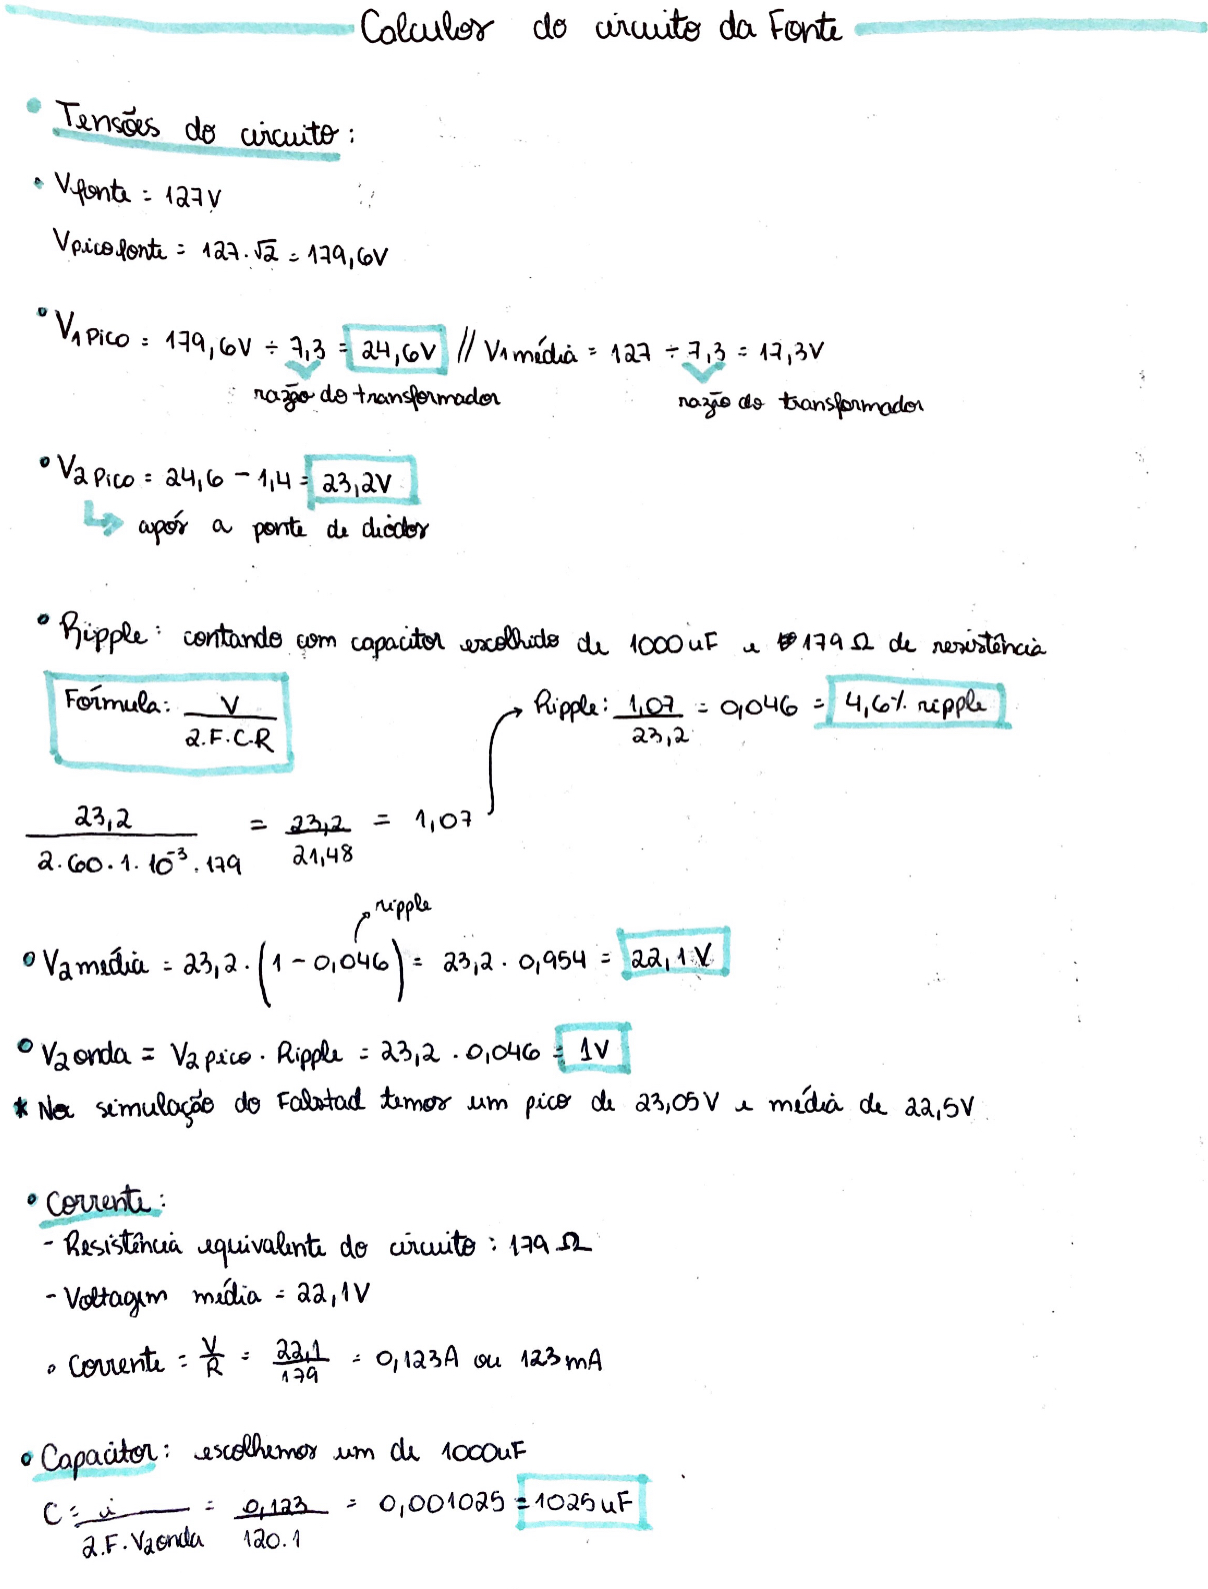 Calculos do circuito da Fonte
Tensões do circuito:
Vfonte = 127V
Vpicofonte = 127.√2 = 179,6V
V1 PICO = 179,6V ÷ 7,3 = 24,6V // V1 média = 127 ÷ 7,3 = 17,3V
razão do transformador razão do transformador
V2 PICO = 24,6 - 1,4 = 23,2V
após a ponte de diodos
Ripple: contando com capacitor escolhido de 1000uF e 179Ω de resistência
Fórmula: V / 2.F.C.R
Ripple: 1,07 / 23,2 = 0,046 = 4,6% ripple
23,2 / 2.60.1.10⁻³.179 = 23,2 / 21,48 = 1,07
ripple
V2 média = 23,2.(1 - 0,046) = 23,2 . 0,954 = 22,1V
V2 onda = V2 pico . Ripple = 23,2 . 0,046 = 1V
* Na simulação do Falstad temos um pico de 23,05V e média de 22,5V
Corrente:
- Resistência equivalente do circuito: 179 Ω
- Voltagem média = 22,1V
Corrente = V/R = 22,1 / 179 = 0,123A ou 123mA
Capacitor: escolhemos um de 1000uF
C = i / 2.F.V2onda = 0,123 / 120.1 = 0,001025 = 1025uF